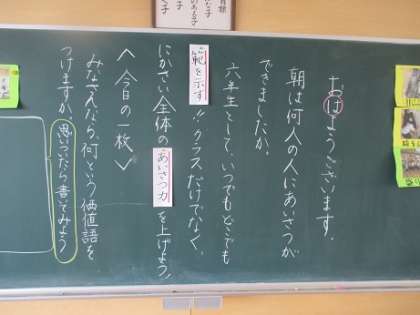 おはようございます。
朝は何人の人にあいさつが
できましたか。
六年生として、いつでもどこでも
範を示す!!クラスだけでなく、
にかさい全体のあいさつ力を上げよう!
<今日の一枚>
みなさんなら、何という価値語を
つけますか。思いついたら書いてみよう